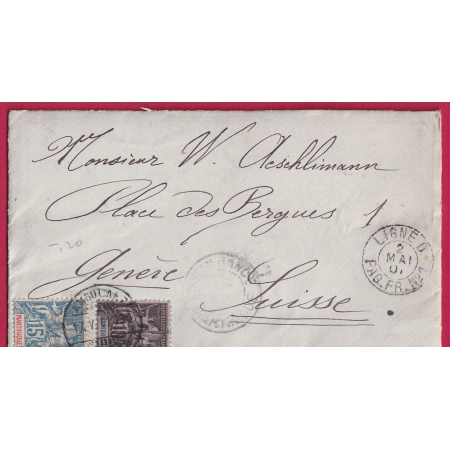 Monsieur W. Aeschlimann
Place des Bergues 1
Genève
Suisse
LIGNE D
2
MAI
01
PAQ. FR. N°1
15
MARTINIQUE